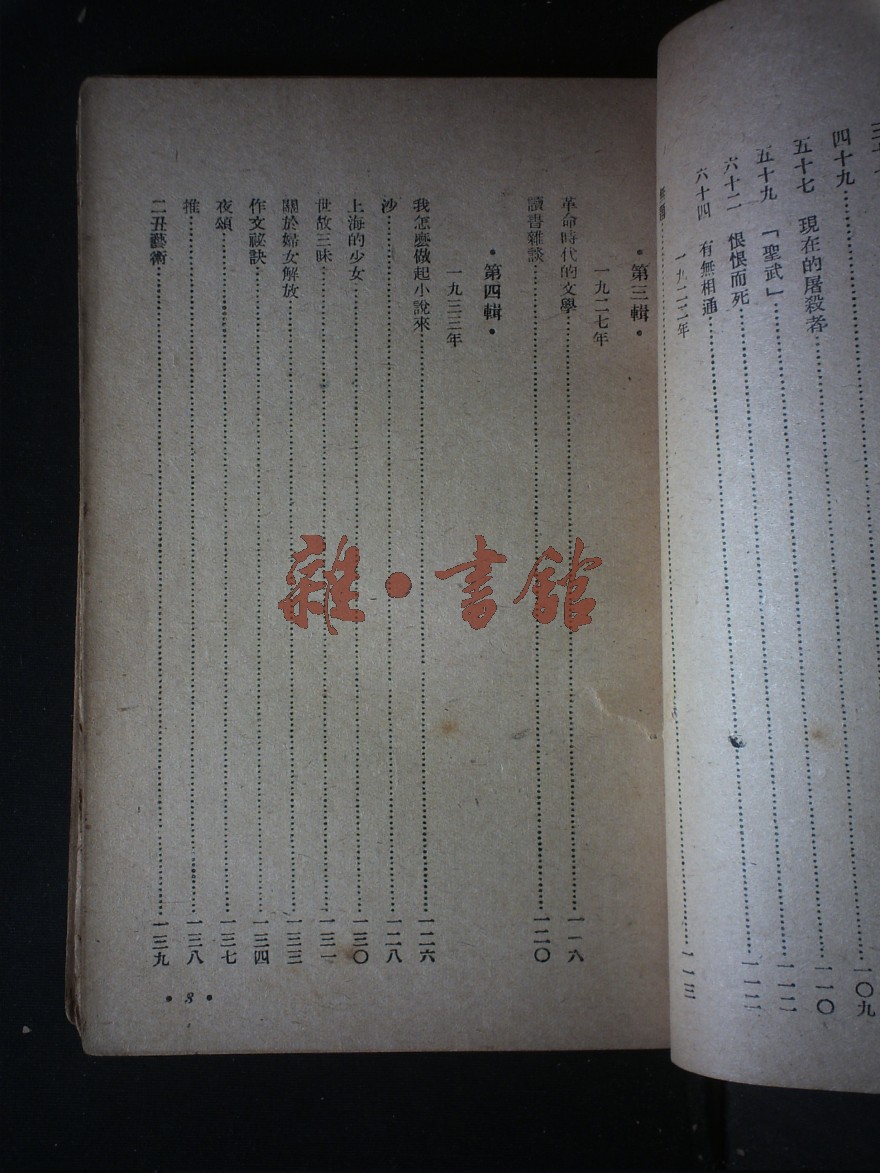 四十九……一〇九
五十七　現在的屠殺者……一一〇
五十九　「聖武」……一一一
六十二　恨恨而死……一一二
六十四　有無相通
一九二二年
……一一三
•第三輯•
一九二七年
革命時代的文學……一一六
讀書雜談……一二〇
•第四輯•
一九三三年
我怎麼做起小說來……一二六
沙……一二八
上海的少女……一三〇
世故三昧……一三一
關於婦女解放……一三三
作文祕訣……一三四
夜頌……一三七
推……一三八
二丑藝術……一三九
• 3 •
雜•書館